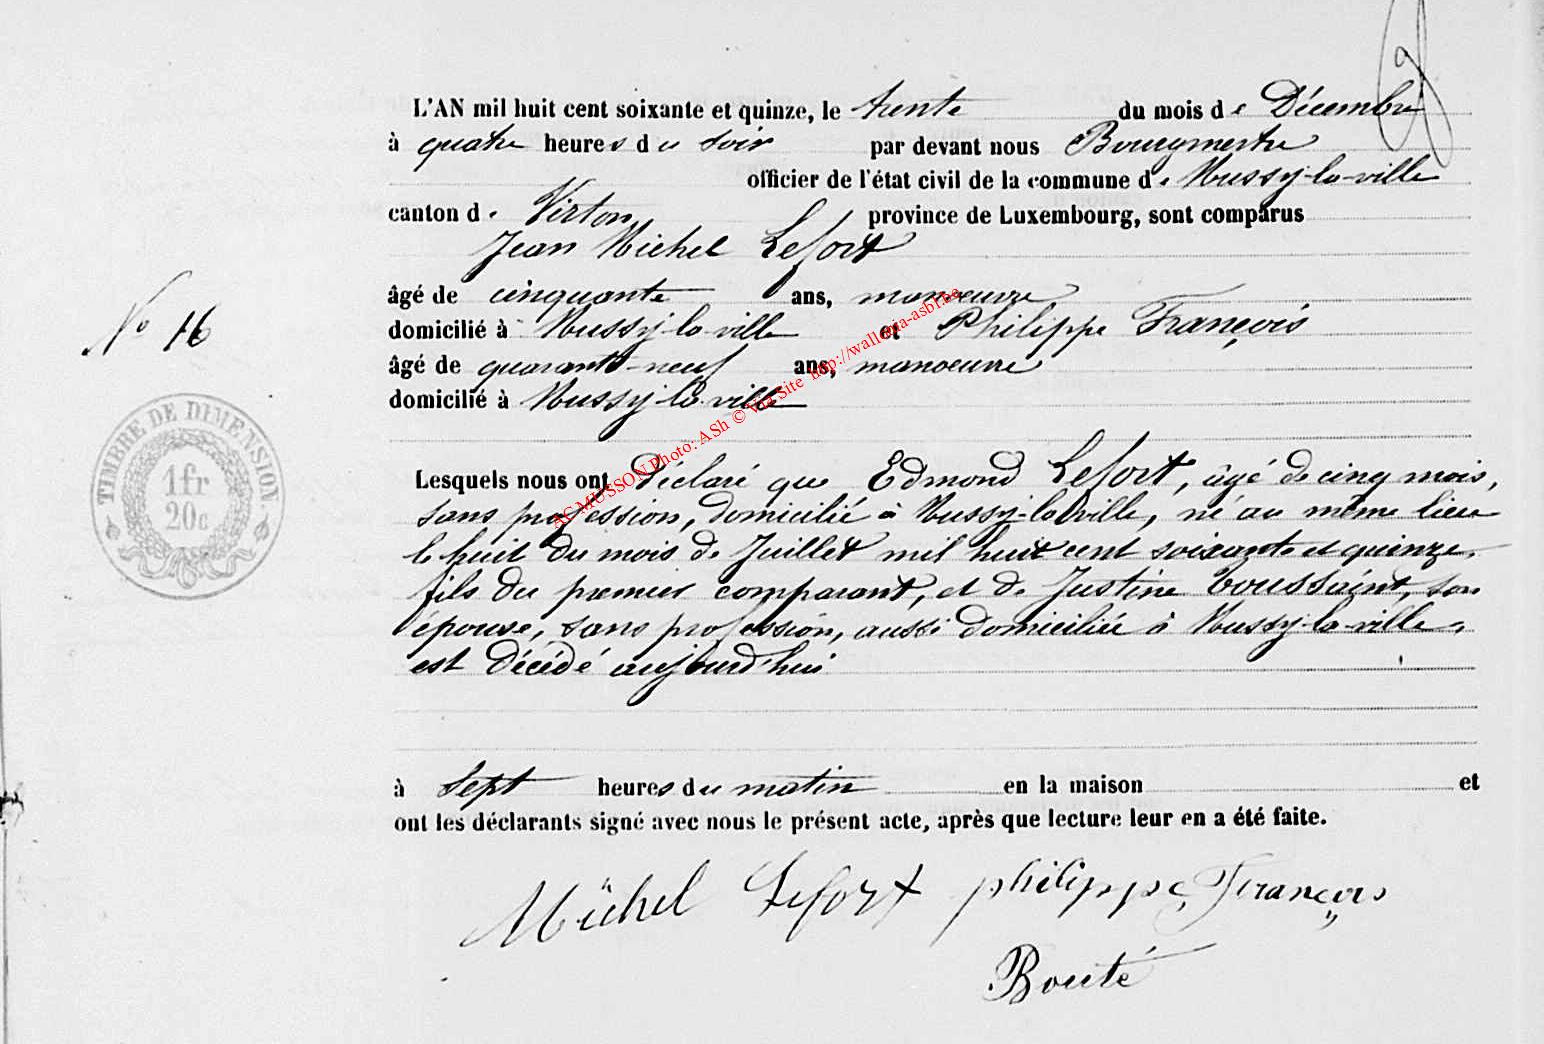 L'AN mil huit cent soixante et quinze, le trente du mois de Décembre
à quatre heures du soir par devant nous Bourgmestre
officier de l'état civil de la commune de Mussy-la-ville
canton de Virton province de Luxembourg, sont comparus
Jean Michel Lefort
âgé de cinquante ans, manoeuvre
domicilié à Mussy-la-ville et Philippe François
âgé de quarante-neuf ans, manoeuvre
domicilié à Mussy-la-ville
No 16
TIMBRE DE DIMENSION.
1fr
20c
Lesquels nous ont déclaré que Edmond Lefort, âgé de cinq mois,
sans profession, domicilié à Mussy-la-ville, né au même lieu
le huit du mois de Juillet mil huit cent soixante et quinze,
fils du premier comparant, et de Justine Toussaint, son
épouse, sans profession, aussi domiciliée à Mussy-la-ville,
est décédé aujourd'hui
à Sept heures du matin en la maison et
ont les déclarants signé avec nous le présent acte, après que lecture leur en a été faite.
Michel Lefort philippe François
Bouté
AC MUSSON Photo: ASh © Via Site http://wallonia-asbl.be